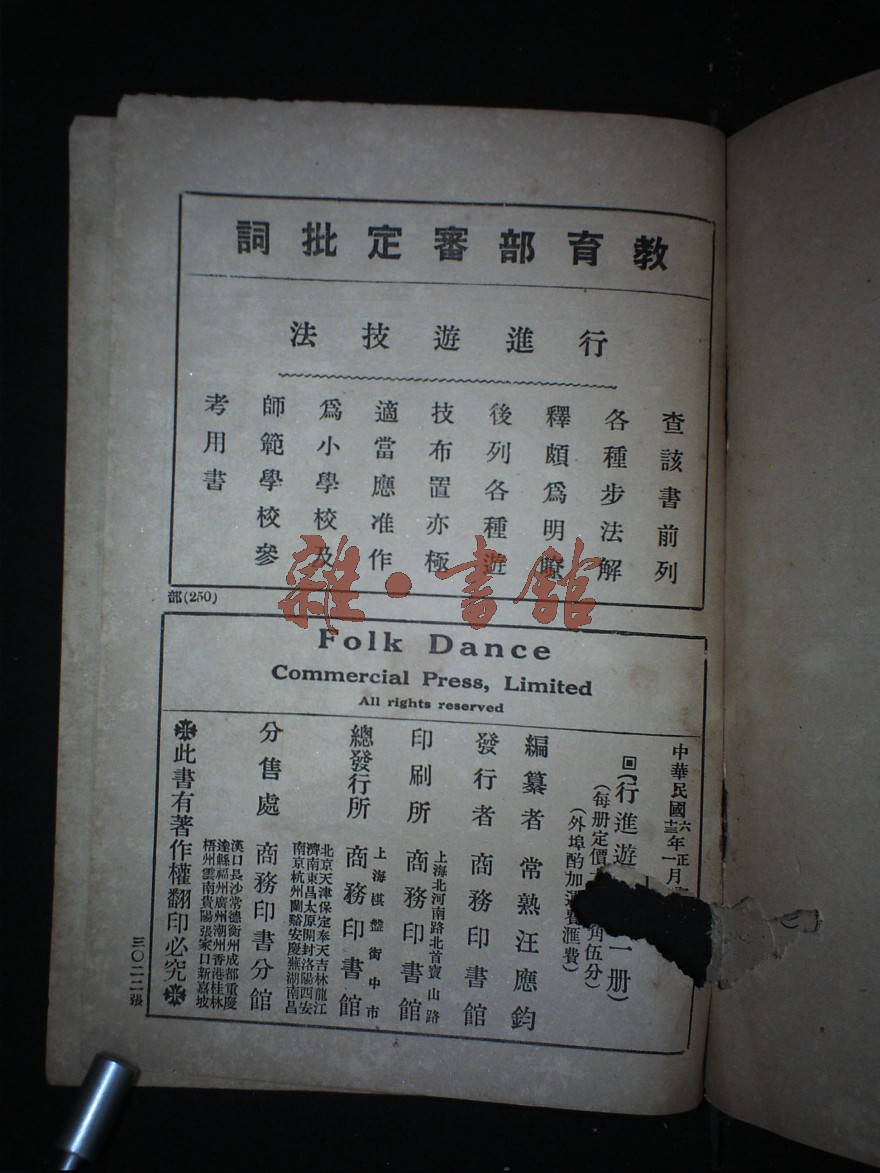 教育部審定批詞
行進遊技法
查該書前列
各種步法解
釋頗爲明瞭
後列各種遊
技布置亦極
適當應准作
爲小學校及
師範學校參
考用書
部(250)
雜·書館
Folk Dance
Commercial Press, Limited
All rights reserved
中華民國
六年正月
十三年一月
(行進遊 一册)
(每册定價 角伍分)
(外埠酌加運費滙費)
編纂者 常熟汪應鈞
發行者 商務印書館
印刷所 上海北河南路北首寶山路 商務印書館
總發行所 上海棋盤街中市 商務印書館
分售處
北京天津保定奉天吉林龍江
濟南東昌太原開封洛陽西安
南京杭州蘭谿安慶蕪湖南昌
商務印書分館
漢口長沙常德衡州成都重慶
達縣福州廣州潮州香港桂林
梧州雲南貴陽張家口新嘉坡
此書有著作權翻印必究
三〇二二張